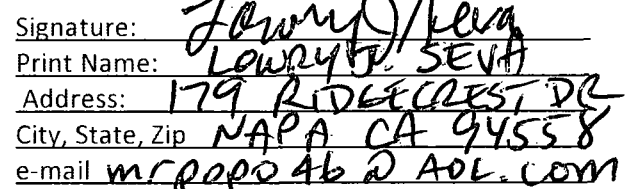 Signature: Lowry J Seva
Print Name: LOWRY J. SEVA
Address: 179 RIDGECREST DR
City, State, Zip NAPA CA 94558
e-mail mrpopo46@AOL.com